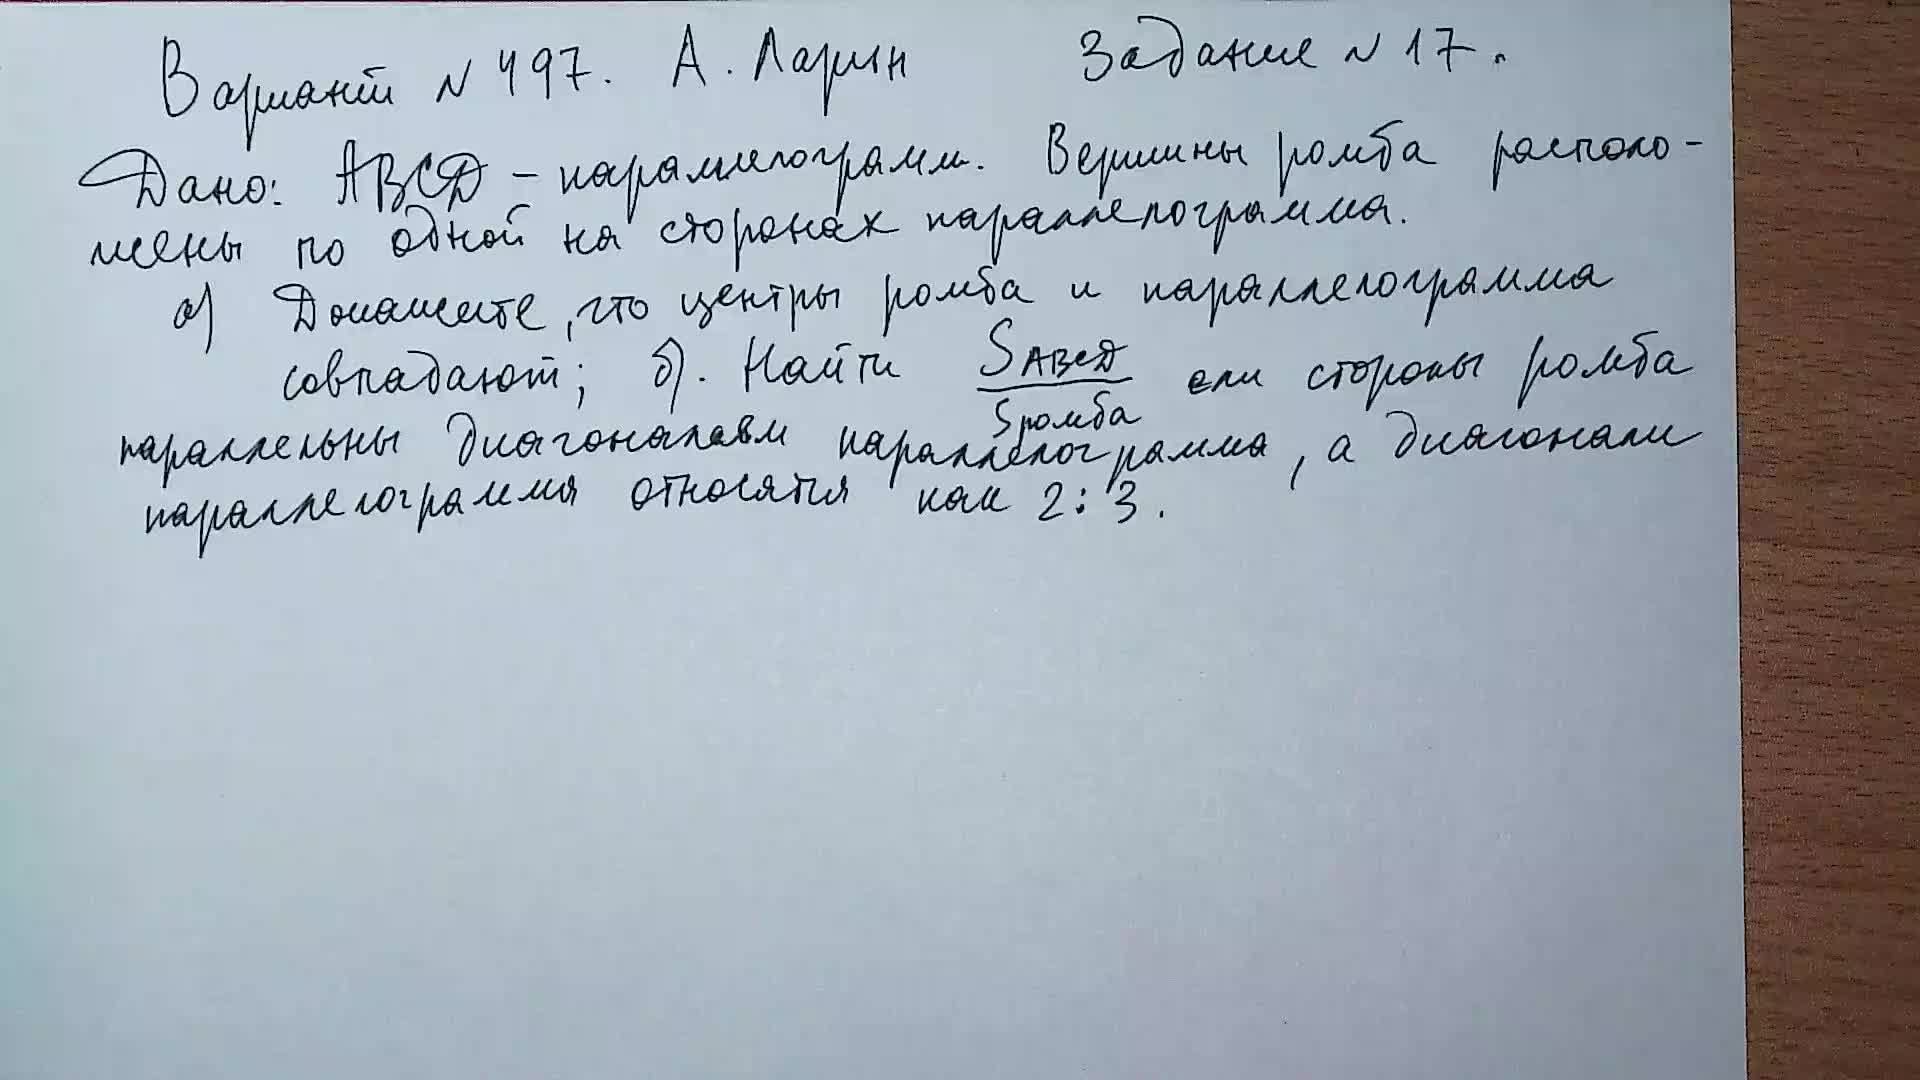 Вариант N 497. А. Ларин Задание N 17.
Дано: ABCD - параллелограмм. Вершины ромба располо-
жены по одной на сторонах параллелограмма.
а) Докажите, что центры ромба и параллелограмма
совпадают; б). Найти S ABCD / S ромба если стороны ромба
параллельны диагоналям параллелограмма, а диагонали
параллелограмма относятся как 2:3.